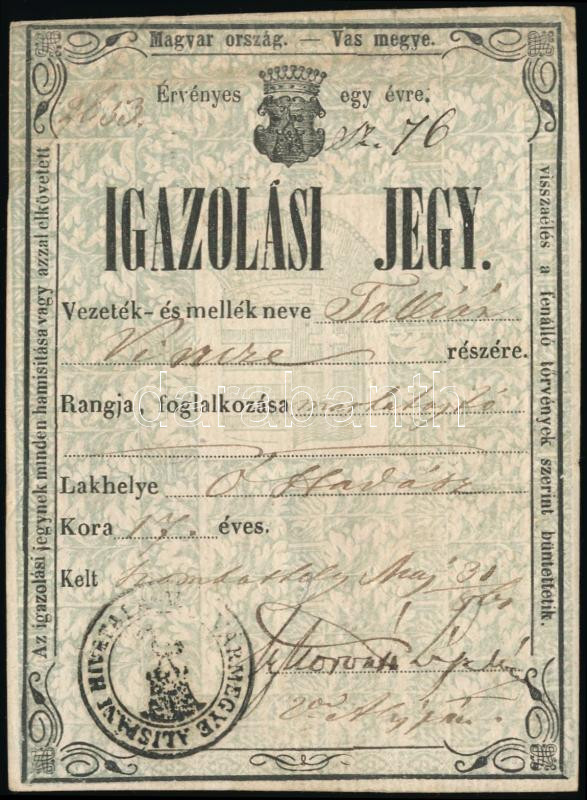 Magyar ország. — Vas megye.
Érvényes egy évre.
2633.
Sz. 76
IGAZOLÁSI JEGY.
Vezeték- és mellék neve Tallián
Vincze részére.
Rangja, foglalkozása marhahajtó
Lakhelye Ó Hadász
Kora 17. éves.
Kelt Szombathely Maj 30
Horváth
VÁRMEGYE ALISPÁNI HIVATALA
Az igazolási jegynek minden hamisitása vagy azzal elkövetett
visszaélés a fenálló törvények szerint büntettetik.
darabanth